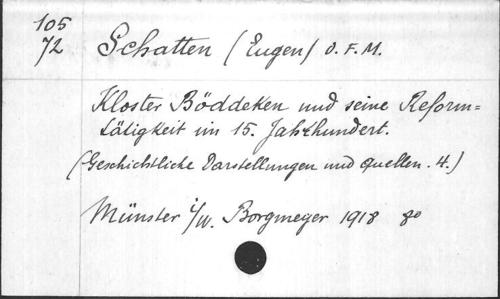 105
72
Schatten (Eugen) O.F.M.
Kloster Böddeken und seine Reform=
tätigkeit im 15. Jahrhundert.
(Geschichtliche Darstellungen und Quellen. 4.)
Münster i/W. Borgmeyer 1918 8°